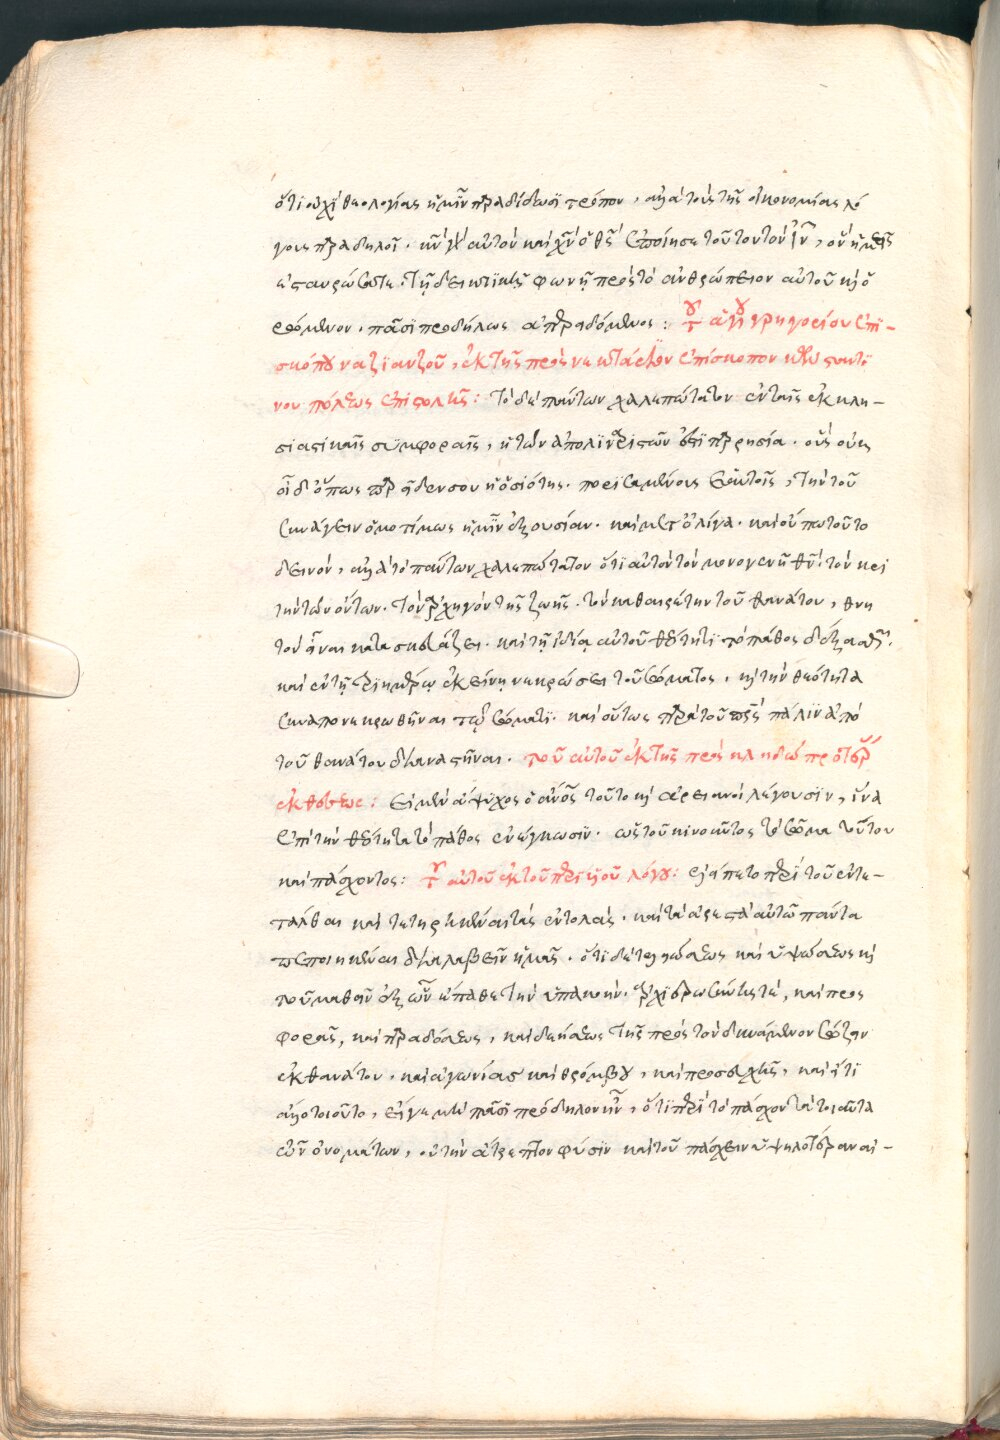 ὅτι οὐχὶ θεολογίας ἡμῖν παραδίδωσι τρόπον, ἀλλὰ τοὺς τῆς οἰκονομίας λό
γους παραδηλοῖ. κν γὰρ αὐτὸν καὶ χν ὁ θς ἐποίησε τοῦτον τὸν ιν, ὃν ὑμεῖς
ἐσταυρώσατε. τῇ δεικτικῇ φωνῇ πρὸς τὸ ἀνθρώπειον αὐτοῦ καὶ ὁ
ρώμενον. πᾶσι προδήλως ἀπερειδόμενος: τοῦ ἁγίου γρηγορίου ἐπι-
σκόπου ναζιανζοῦ, ἐκ τῆς πρὸς νεκτάριον ἐπίσκοπον κωνσταντι
νου πόλεως ἐπιστολῆς: τὸ δὲ πάντων χαλεπώτατον ἐν ταῖς ἐκκλη-
σιαστικαῖς συμφοραῖς, ἡ τῶν ἀπολιναριστῶν ἐστι παρρησία. οὓς οὐκ
οἶδ' ὅπως παρεῖδέν σου ἡ ὁσιότης. πορισαμένους ἑαυτοῖς, τὴν τοῦ
συνάγειν ὁμοτίμως ἡμῖν ἐξουσίαν. καὶ μετ' ὀλίγα. καὶ οὔπω τοῦτο
δεινόν, ἀλλὰ τὸ πάντων χαλεπώτατον ὅτι αὐτὸν τὸν μονογενῆ θν. τὸν κρι
τὴν τῶν ὄντων. τὸν ἀρχηγὸν τῆς ζωῆς. τὸν καθαιρέτην τοῦ θανάτου, θνη
τὸν εἶναι κατασκευάζει. καὶ τῇ ἰδίᾳ αὐτοῦ θεότητι τὸ πάθος δέξασθαι.
καὶ ἐν τῇ τριημέρῳ ἐκείνῃ νεκρώσει τοῦ σώματος, καὶ τὴν θεότητα
συναπονεκρωθῆναι τῷ σώματι. καὶ οὕτως παρὰ τοῦ πρς πάλιν ἀπὸ
τοῦ θανάτου διαναστῆναι. τοῦ αὐτοῦ ἐκ τῆς πρὸς κληδώ πρότερ
ἐκθέσεως: εἰ μὲν ἄψυχος ὁ ανος τοῦτο καὶ ἀρειανοὶ λέγουσιν, ἵνα
ἐπὶ τὴν θεότητα τὸ πάθος ἐνέγκωσιν. ὡς τοῦ κινοῦντος τὸ σῶμα τούτου
καὶ πάσχοντος: τοῦ αὐτοῦ ἐκ τοῦ περὶ υἱοῦ λόγου: εἰλήπετο περὶ τοῦ ἐντε-
τάλθαι καὶ τετηρηκέναι τὰς ἐντολάς. καὶ τὰ ἀρεστὰ αὐτῶ πάντα
πεποιηκέναι διαλαβεῖν ἡμᾶς. ὅτι δὲ τελειώσεως καὶ ὑψώσεως καὶ
τοῦ μαθεῖν ἐξ ὧν ἔπαθε τὴν ὑπακοήν. ἀρχιερωσύνης τέ, καὶ προσ
φορᾶς, καὶ παραδόσεως, καὶ δεήσεως τῆς πρὸς τὸν δυνάμενον σώζειν
ἐκ θανάτου. καὶ ἀγωνίας καὶ θρόμβου, καὶ προσευχῆς, καὶ εἴ τι
ἄλλο τοιοῦτο, εἴγε μὴ πᾶσι πρόδηλον ἦν, ὅτι περὶ τὸ πάσχον τὰ τοιαῦτα
τῶν ὀνομάτων, οὐ τὴν ἄτρεπτον φύσιν καὶ τοῦ πάσχειν ὑψηλοτέραν αἰ-